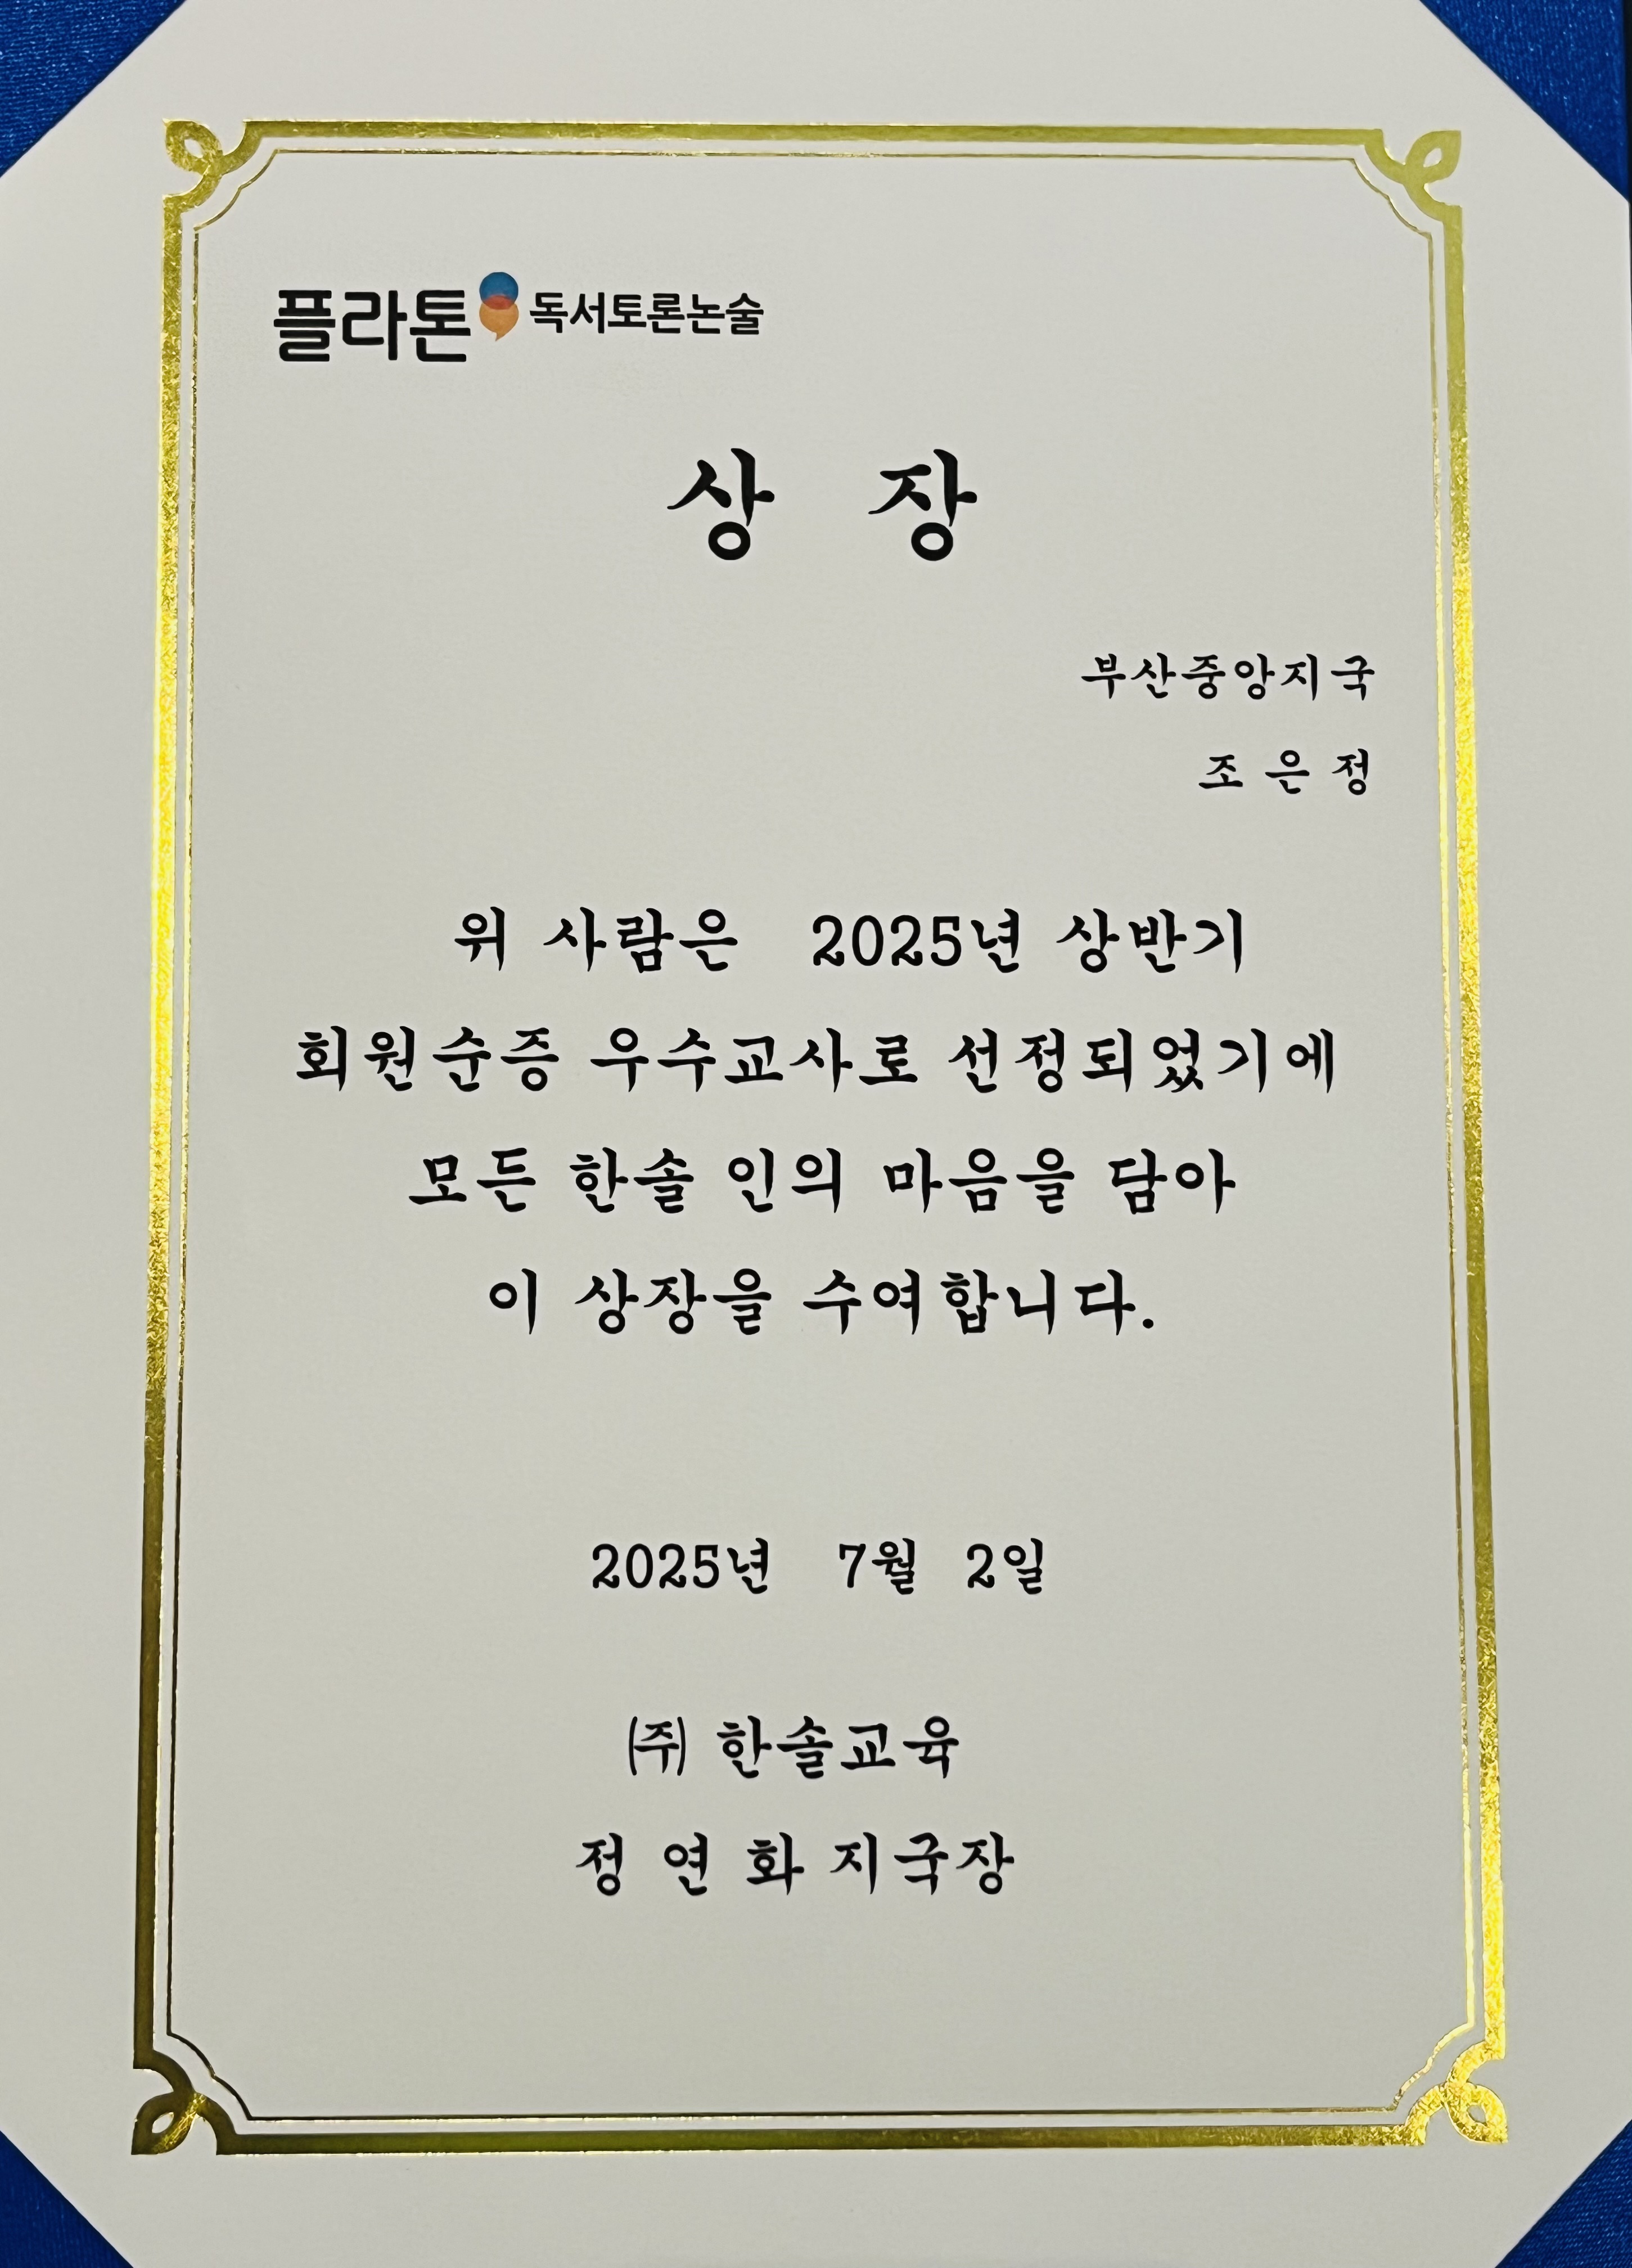 플라톤 독서토론논술
상 장
부산중앙지국
조 은 정
위 사람은 2025년 상반기
회원순증 우수교사로 선정되었기에
모든 한솔 인의 마음을 담아
이 상장을 수여합니다.
2025년 7월 2일
㈜ 한솔교육
정 연 화 지국장